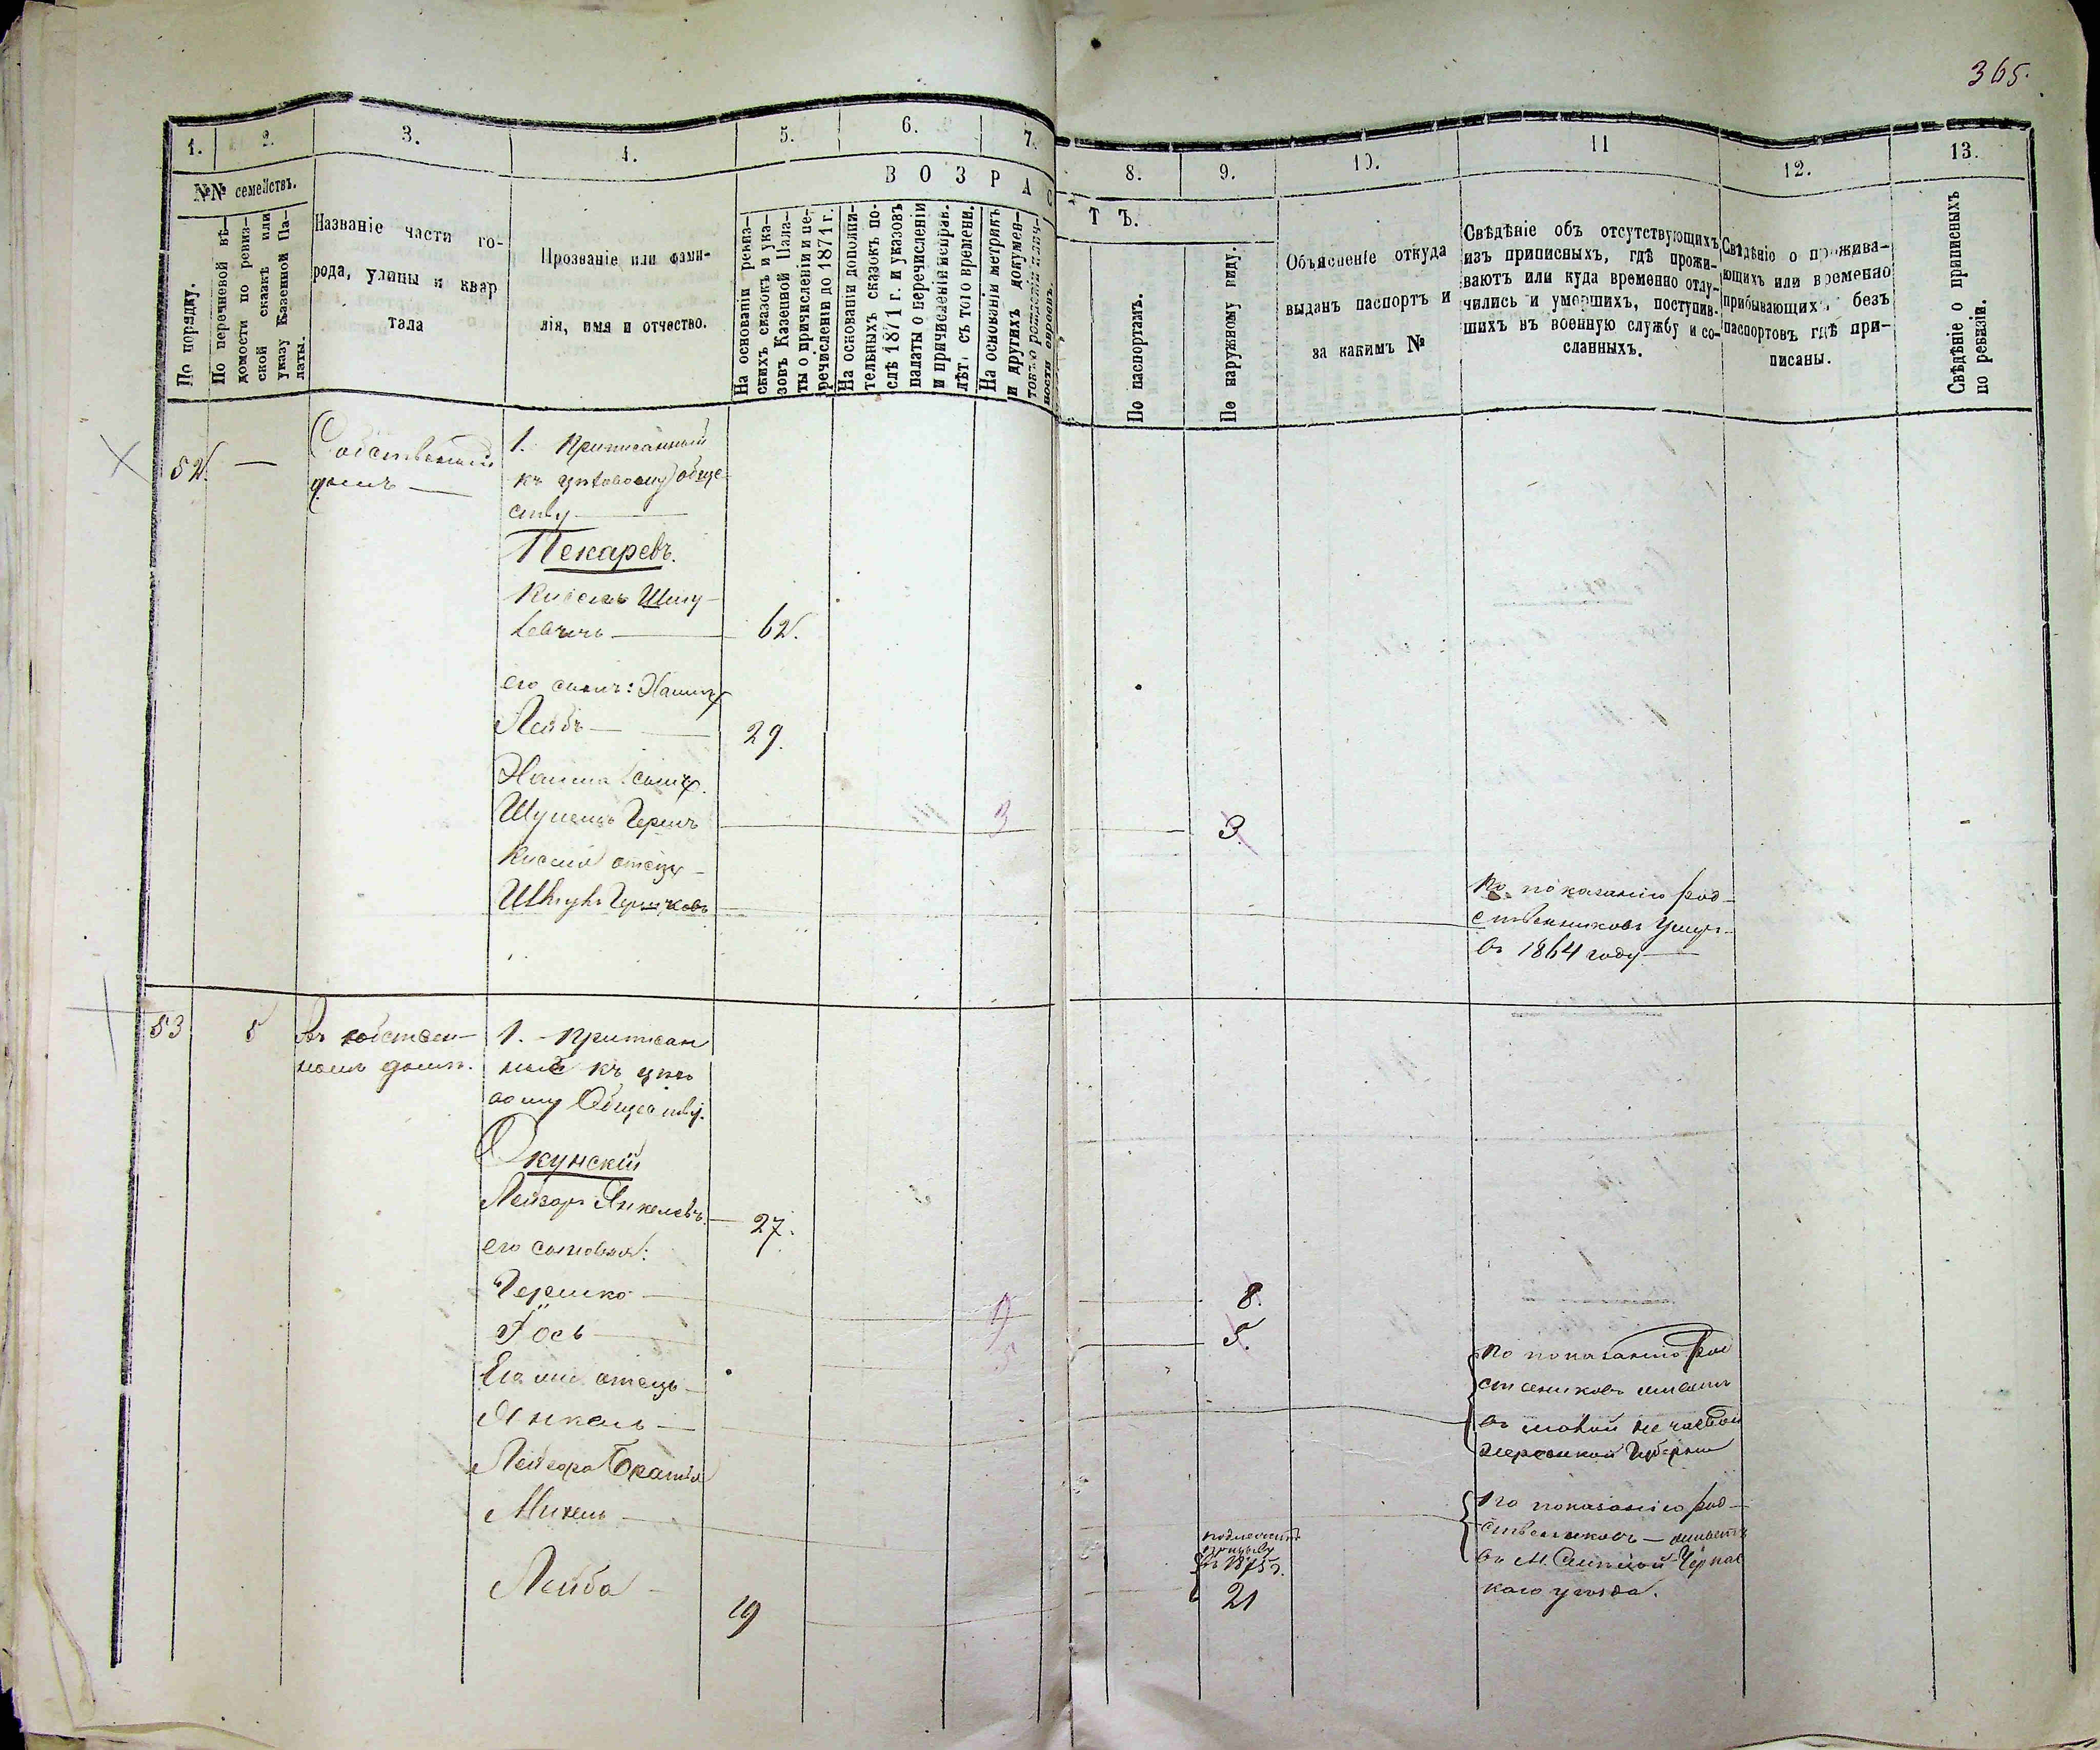 365.
1.
2.
3.
4.
5.
6.
7.
8.
9.
10.
11
12.
13.
№№ семействъ.
В О З Р А С
Т Ъ.
По порядку.
По перечневой вѣ-
домости по ревиз-
ской сказкѣ или
указу Казенной Па-
латы.
Названіе части го-
рода, улицы и квар
тала
Прозваніе или фами-
лія, имя и отчество.
На основаніи ревиз-
скихъ сказокъ и ука-
зовъ Казенной Пала-
ты о причисленіи и пе-
речисленіи до 1871 г.
На основаніи дополни-
тельныхъ сказокъ по-
слѣ 1871 г. и указовъ
палаты о перечисленіи
и причисленіи исправ.
лѣтъ съ того времени.
На основаніи метрикъ
и другихъ докумен-
товъ о рожденіи
По паспортамъ.
По наружному виду.
Объясненіе откуда
выданъ паспортъ и
за какимъ №
Свѣдѣніе объ отсутствующихъ
изъ приписныхъ, гдѣ прожи-
ваютъ или куда временно отлу-
чились и умершихъ, поступив-
шихъ въ военную службу и со-
сланныхъ.
Свѣдѣніе о прожива-
ющихъ или временно
прибывающихъ, безъ
паспортовъ гдѣ при-
писаны.
Свѣдѣніе о приписныхъ
по ревизіи.
52. —
Собственный
домъ —
1. Приписанный
къ цеховому обще
ству
Пекаревъ.
Кисель Шму-
левичъ — 62.
его сынъ: Хаимъ
Лейбъ — 29.
Хаима сынъ
Шулемъ Гершъ 3 3.
Киселя отецъ
Гершковъ
По показанію род-
ственниковъ умеръ
въ 1864 году
53 5
въ собствен-
номъ домѣ.
1. - Приписан
ные къ цехо
вому Обществу.
Окунскій
Лейзоръ Янкелевъ. 27.
его сыновья:
Гершко 9 8.
Іось 5 5.
Его же отецъ
Янкель
По показанію род
ственниковъ живетъ
въ
Херсонской Губерніи
Лейзора братья
Михель
По показанію род-
ственниковъ — живетъ
въ М. Смѣлой Черкас
каго уѣзда.
Лейба 19
подлежитъ
призыву
въ 1875 г.
21